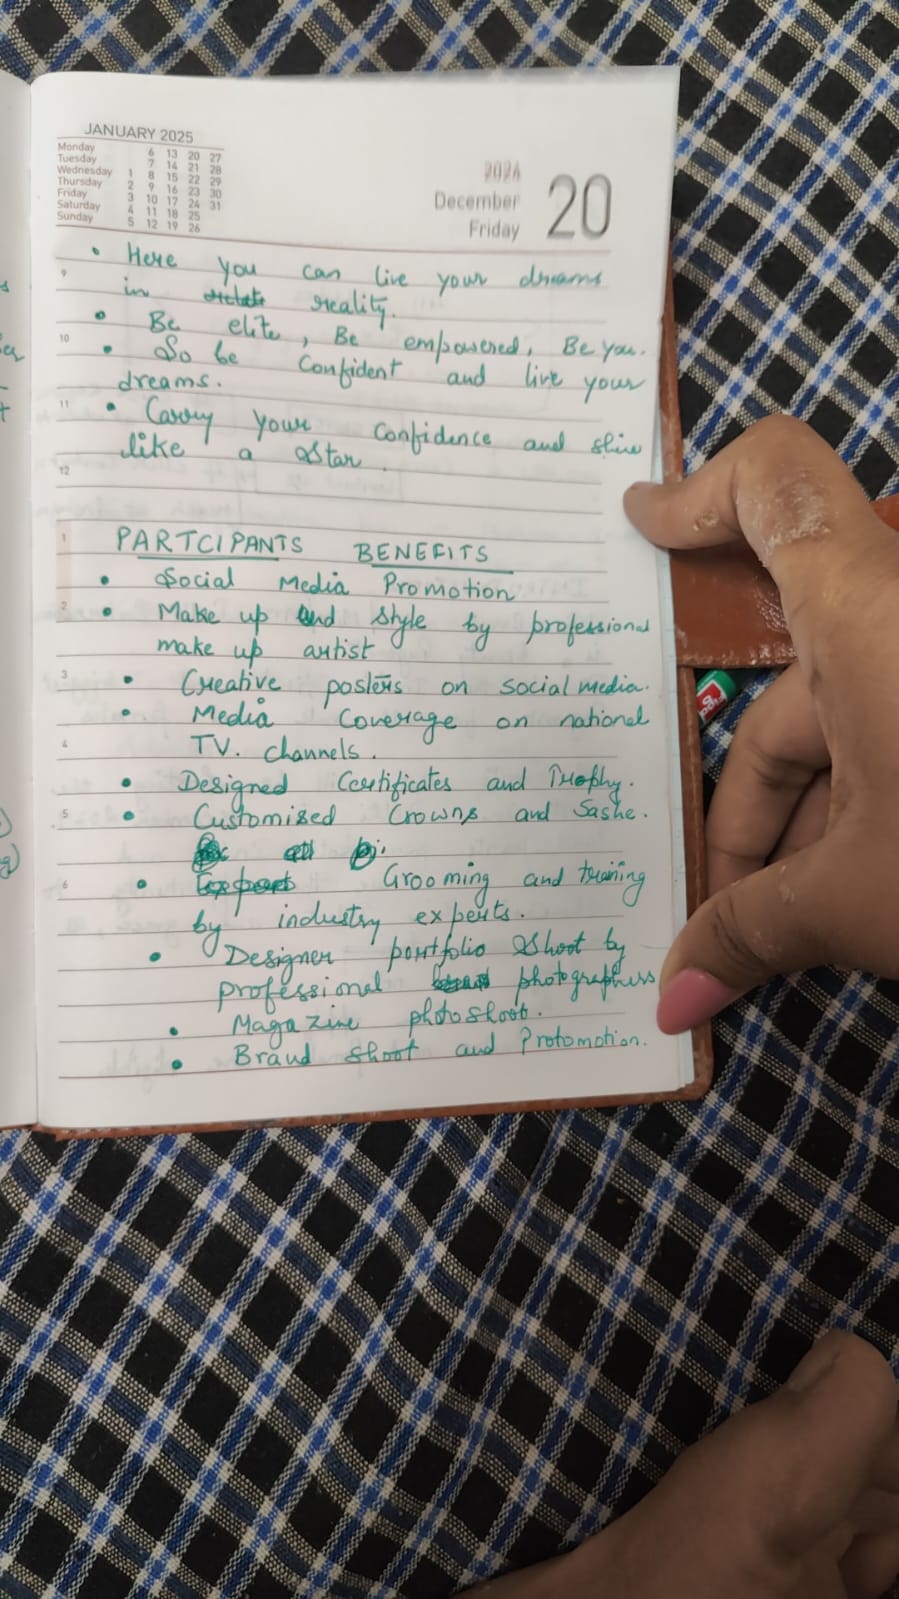 JANUARY 2025
Monday 6 13 20 27
Tuesday 7 14 21 28
Wednesday 1 8 15 22 29
Thursday 2 9 16 23 30
Friday 3 10 17 24 31
Saturday 4 11 18 25
Sunday 5 12 19 26
2024
December 20
Friday
• Here you can live your dreams
9
in reality.
• Be elite, Be empowered, Be you.
10
• So be Confident and live your
dreams.
11
• Carry your confidence and shine
like a Star.
12
1
PARTCIPANTS BENEFITS
• Social Media Promotion
2
• Make up and style by professional
make up artist
3
• Creative posters on social media.
• Media Coverage on national
4
TV. channels.
• Designed Certificates and Trophy.
5
• Customised Crowns and Sashe.
6
• Grooming and training
by industry experts.
• Designer portfolio Shoot by
professional photographers
• Magazine photoshoot.
• Brand shoot and Protomotion.